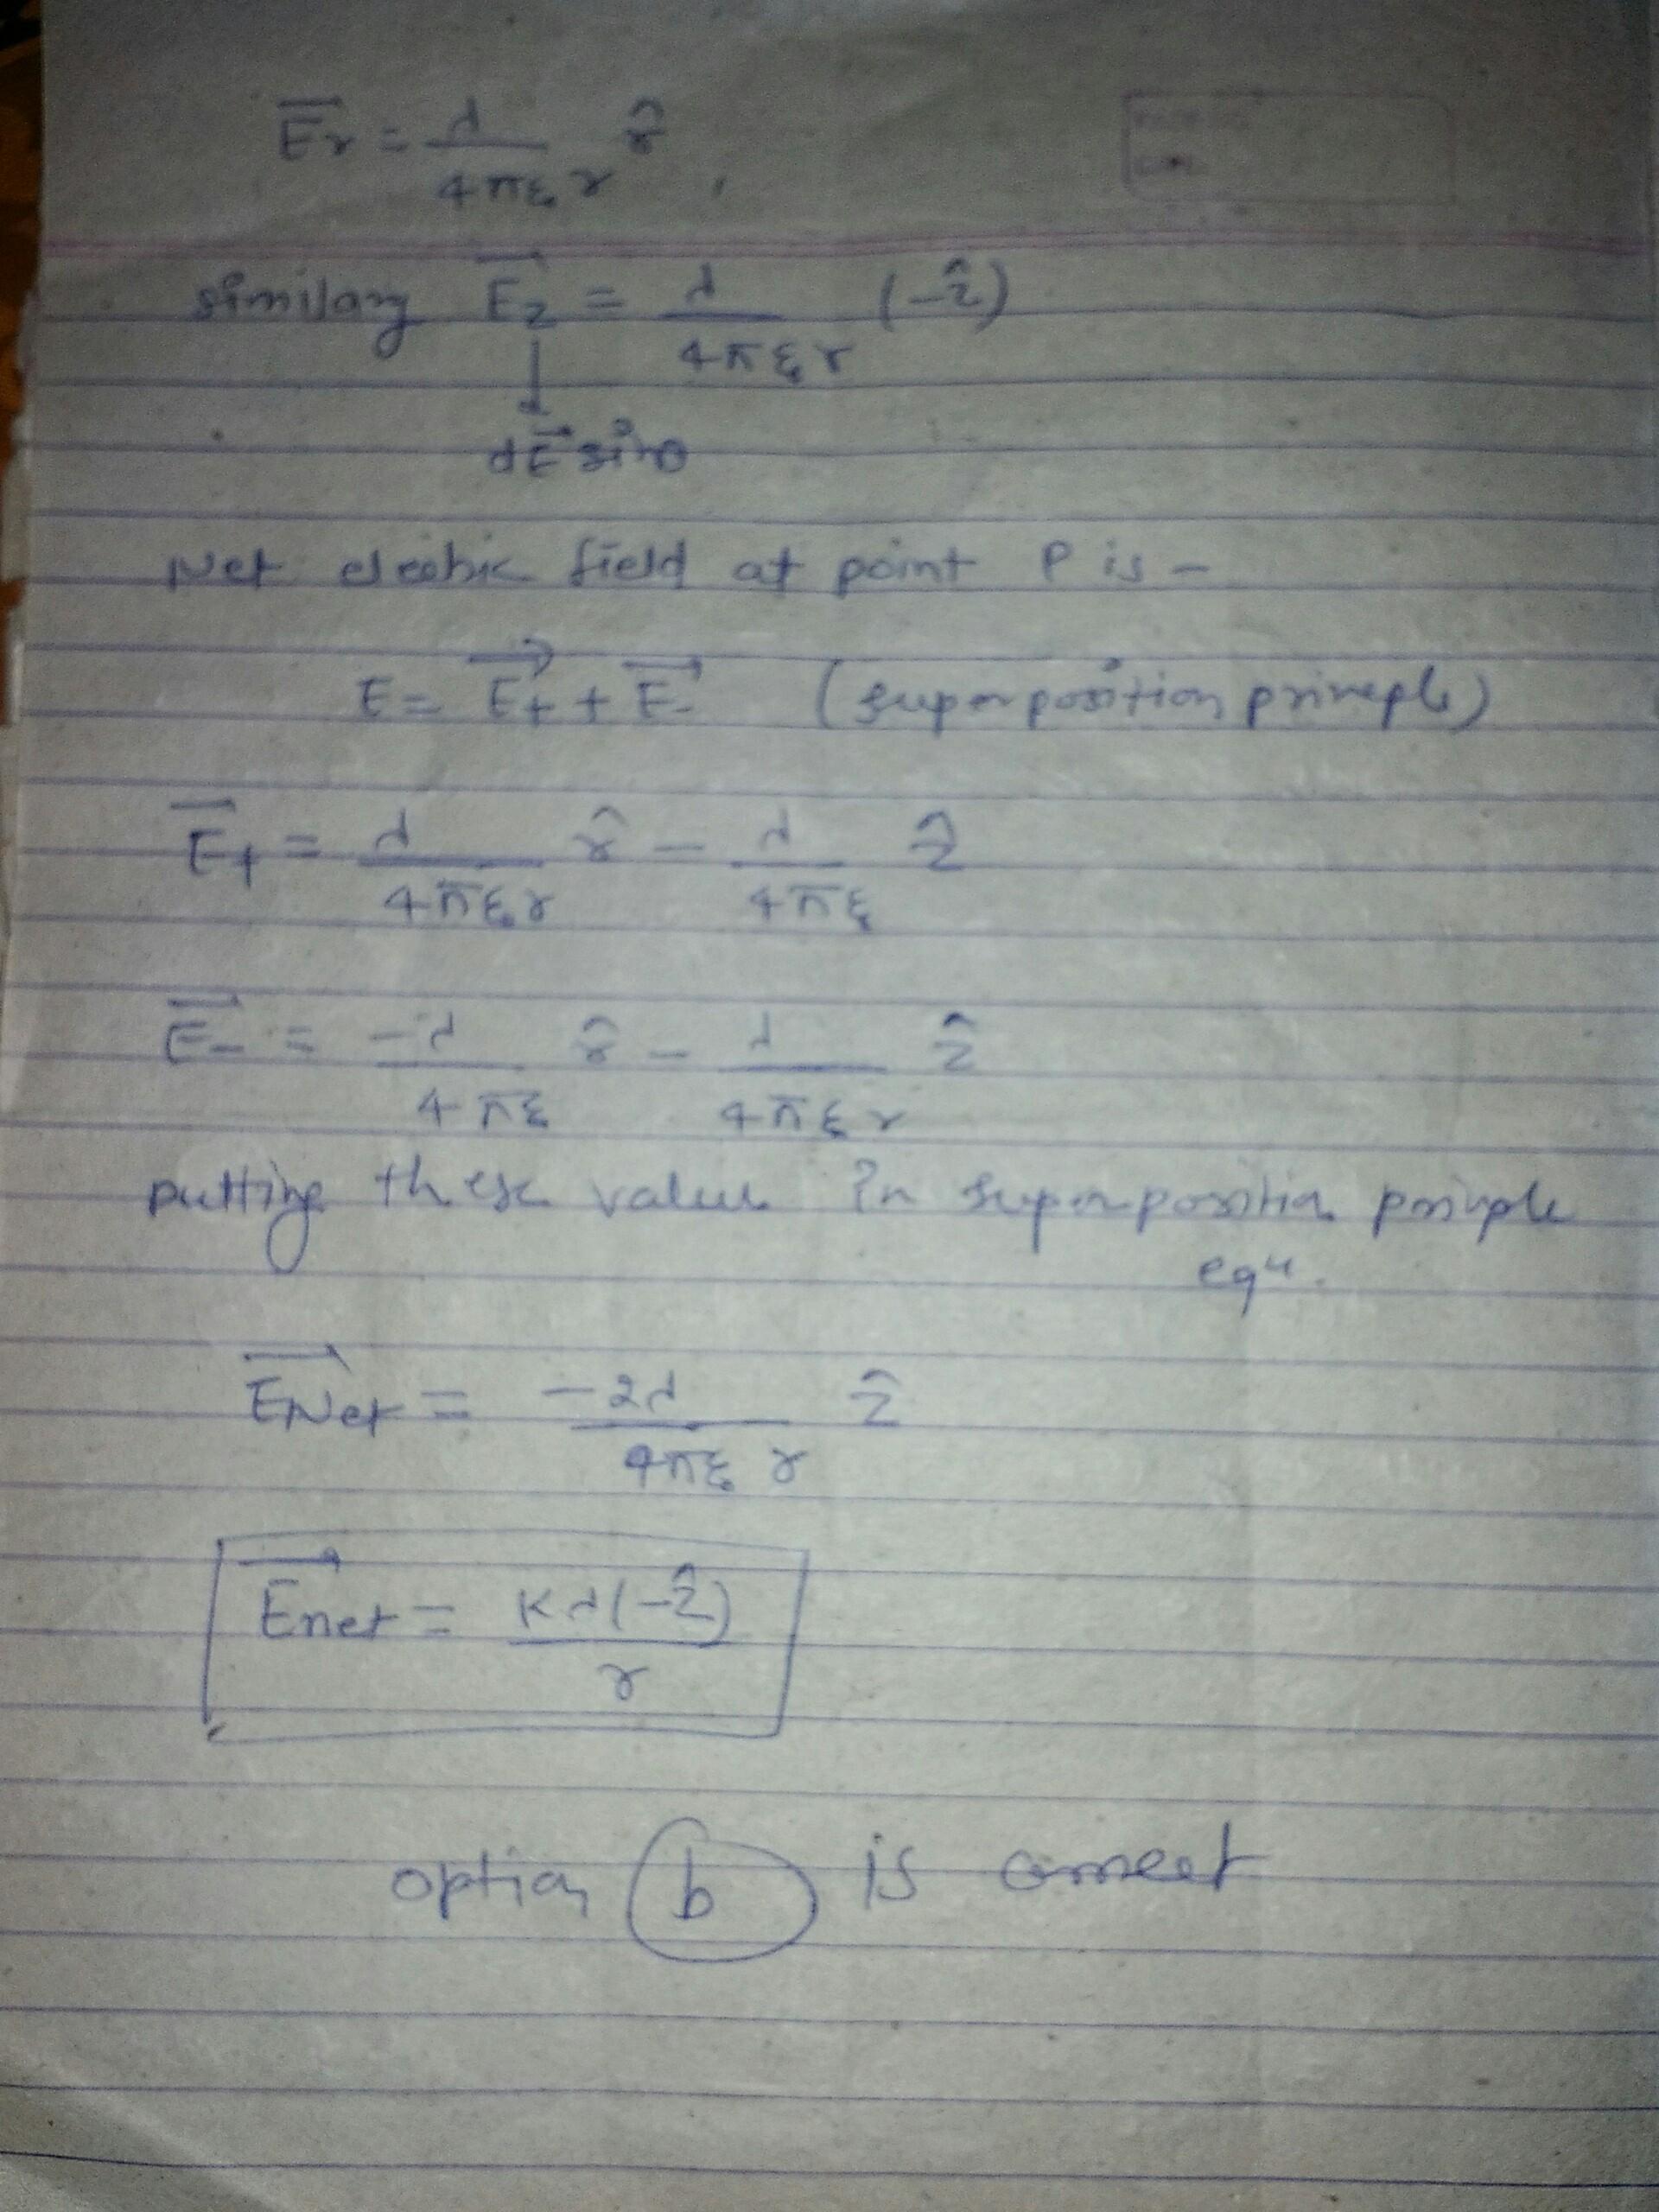 E⃗r = λ / 4πε₀r r̂
similary E⃗z = λ / 4πε₀r (-ẑ)
dE⃗ sinθ
Net electric field at point P is -
E = E⃗+ + E⃗- (superposition principle)
E⃗+ = λ / 4πε₀r r̂ - λ / 4πε₀ ẑ
E⃗- = -λ / 4πε₀ r̂ - λ / 4πε₀r ẑ
putting these value in superposition priniple
equ.
E⃗Net = -2λ / 4πε₀r ẑ
E⃗net = Kλ(-ẑ) / r
option b is correct